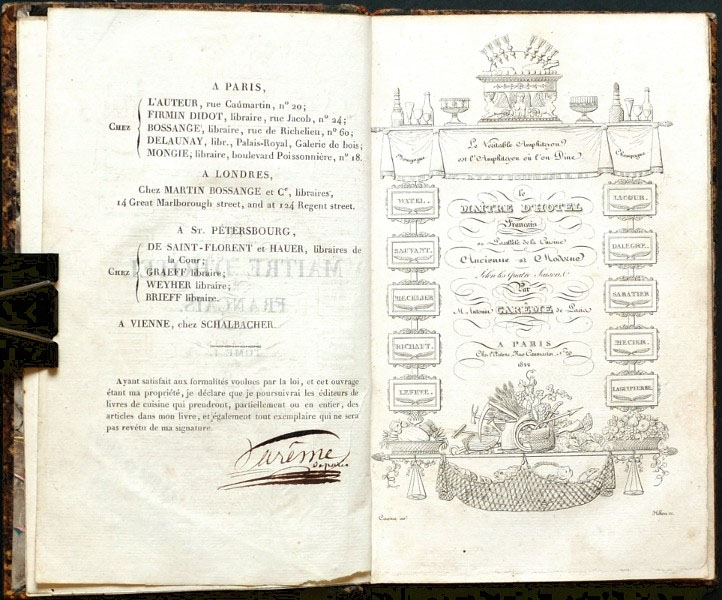 A PARIS,
L'AUTEUR, rue Caûmartin, n° 20;
FIRMIN DIDOT, libraire, rue Jacob, n° 24;
CHEZ BOSSANGE, libraire, rue de Richelieu, n° 60;
DELAUNAY, libr., Palais-Royal, Galerie de bois;
MONGIE, libraire, boulevard Poissonnière, n° 18.
A LONDRES,
Chez MARTIN BOSSANGE et Ce, libraires,
14 Great Marlborough street, and at 124 Regent street.
A ST. PÉTERSBOURG,
DE SAINT-FLORENT et HAUER, libraires de
la Cour;
CHEZ GRAEFF libraire;
WEYHER libraire;
BRIEFF libraire.
A VIENNE, chez SCHALBACHER.
Ayant satisfait aux formalités voulues par la loi, et cet ouvrage
étant ma propriété, je déclare que je poursuivrai les éditeurs de
livres de cuisine qui prendront, partiellement ou en entier, des
articles dans mon livre, et également tout exemplaire qui ne sera
pas revêtu de ma signature.
Carême
de paris
Le Véritable Amphitryon
est l'Amphitryon où l'on Dine
Bourgogne
Champagne
WATEL.
SAUVANT.
MECELIER
RICHAUT.
LEFEVE.
le
MAÎTRE D'HOTEL
Français
ou Parallèle de la Cuisine
Ancienne et Moderne
Selon les Quatre Saisons
Par
M. Antonin CARÊME de Paris
A PARIS
Chez l'Auteur, Rue Caumartin, n° 20
1822
LACOUR.
DALEGRE.
SABATIER
HECIER.
LAGUIPIERRE.
Careme inv.
Hibon sc.